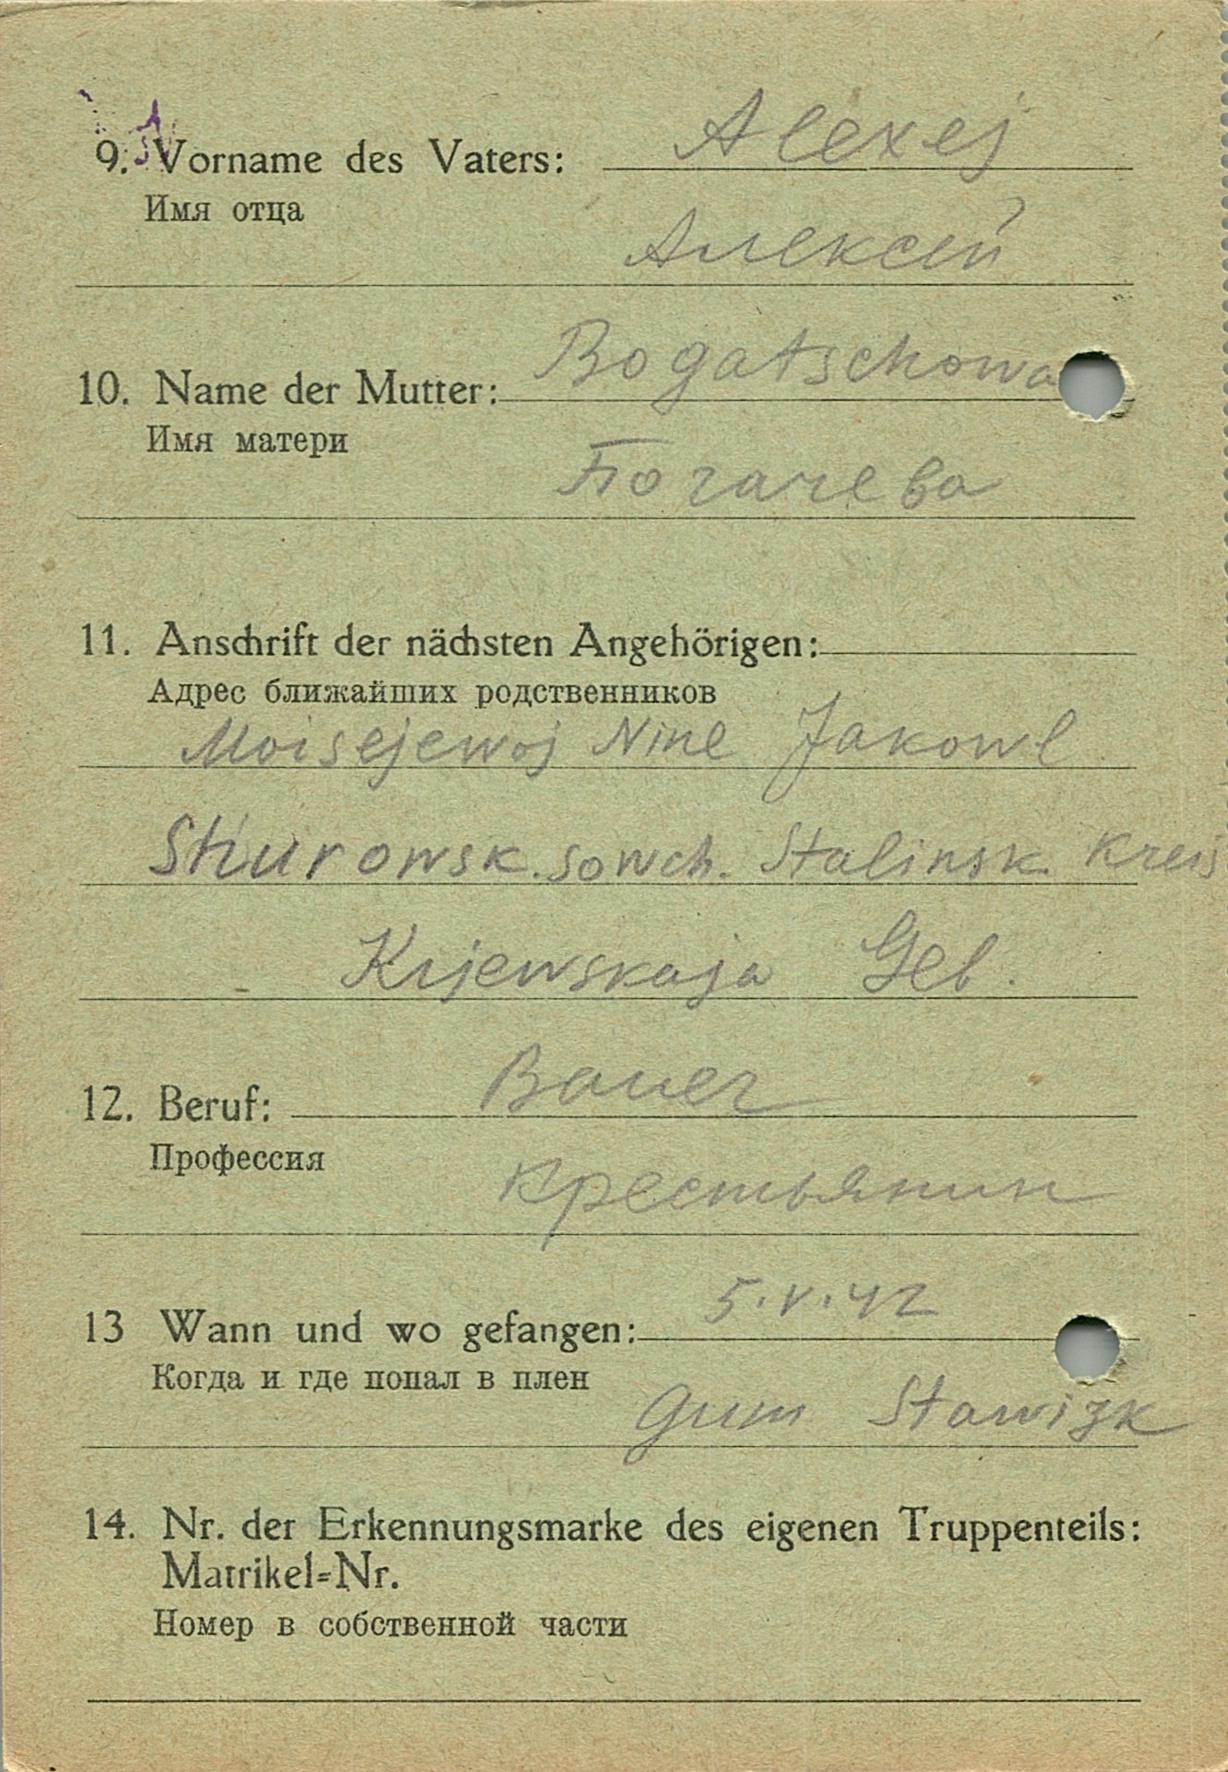 9. Vorname des Vaters: Alexej
Имя отца
Алексей
10. Name der Mutter: Bogatschowa
Имя матери
Богачева
11. Anschrift der nächsten Angehörigen:
Адрес ближайших родственников
Moisejewoj Nine Jakowl
sowch. Stalinsk. Kreis
Kijewskaja Geb.
12. Beruf: Bauer
Профессия
Крестьянин
13 Wann und wo gefangen: 5.V.42
Когда и где попал в плен
14. Nr. der Erkennungsmarke des eigenen Truppenteils:
Matrikel-Nr.
Номер в собственной части